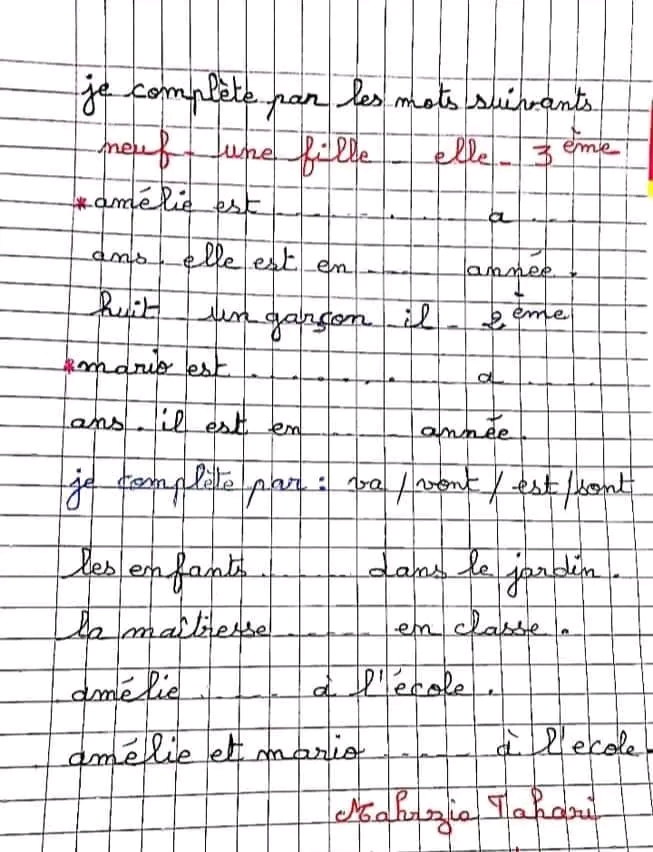 je complète par les mots suivants
neuf - une fille - elle - 3 ème
*amélie est .................. a ....
ans. elle est en ....... année.
huit un garçon il - 2 ème
*mario est .................. a ........
ans. il est en ....... année.
je complète par : va / vont / est / sont
les enfants ......... dans le jardin.
la maîtresse ......... en classe.
amélie ......... à l'école.
amélie et mario ......... à l'ecole.
Mahrzia Tahari